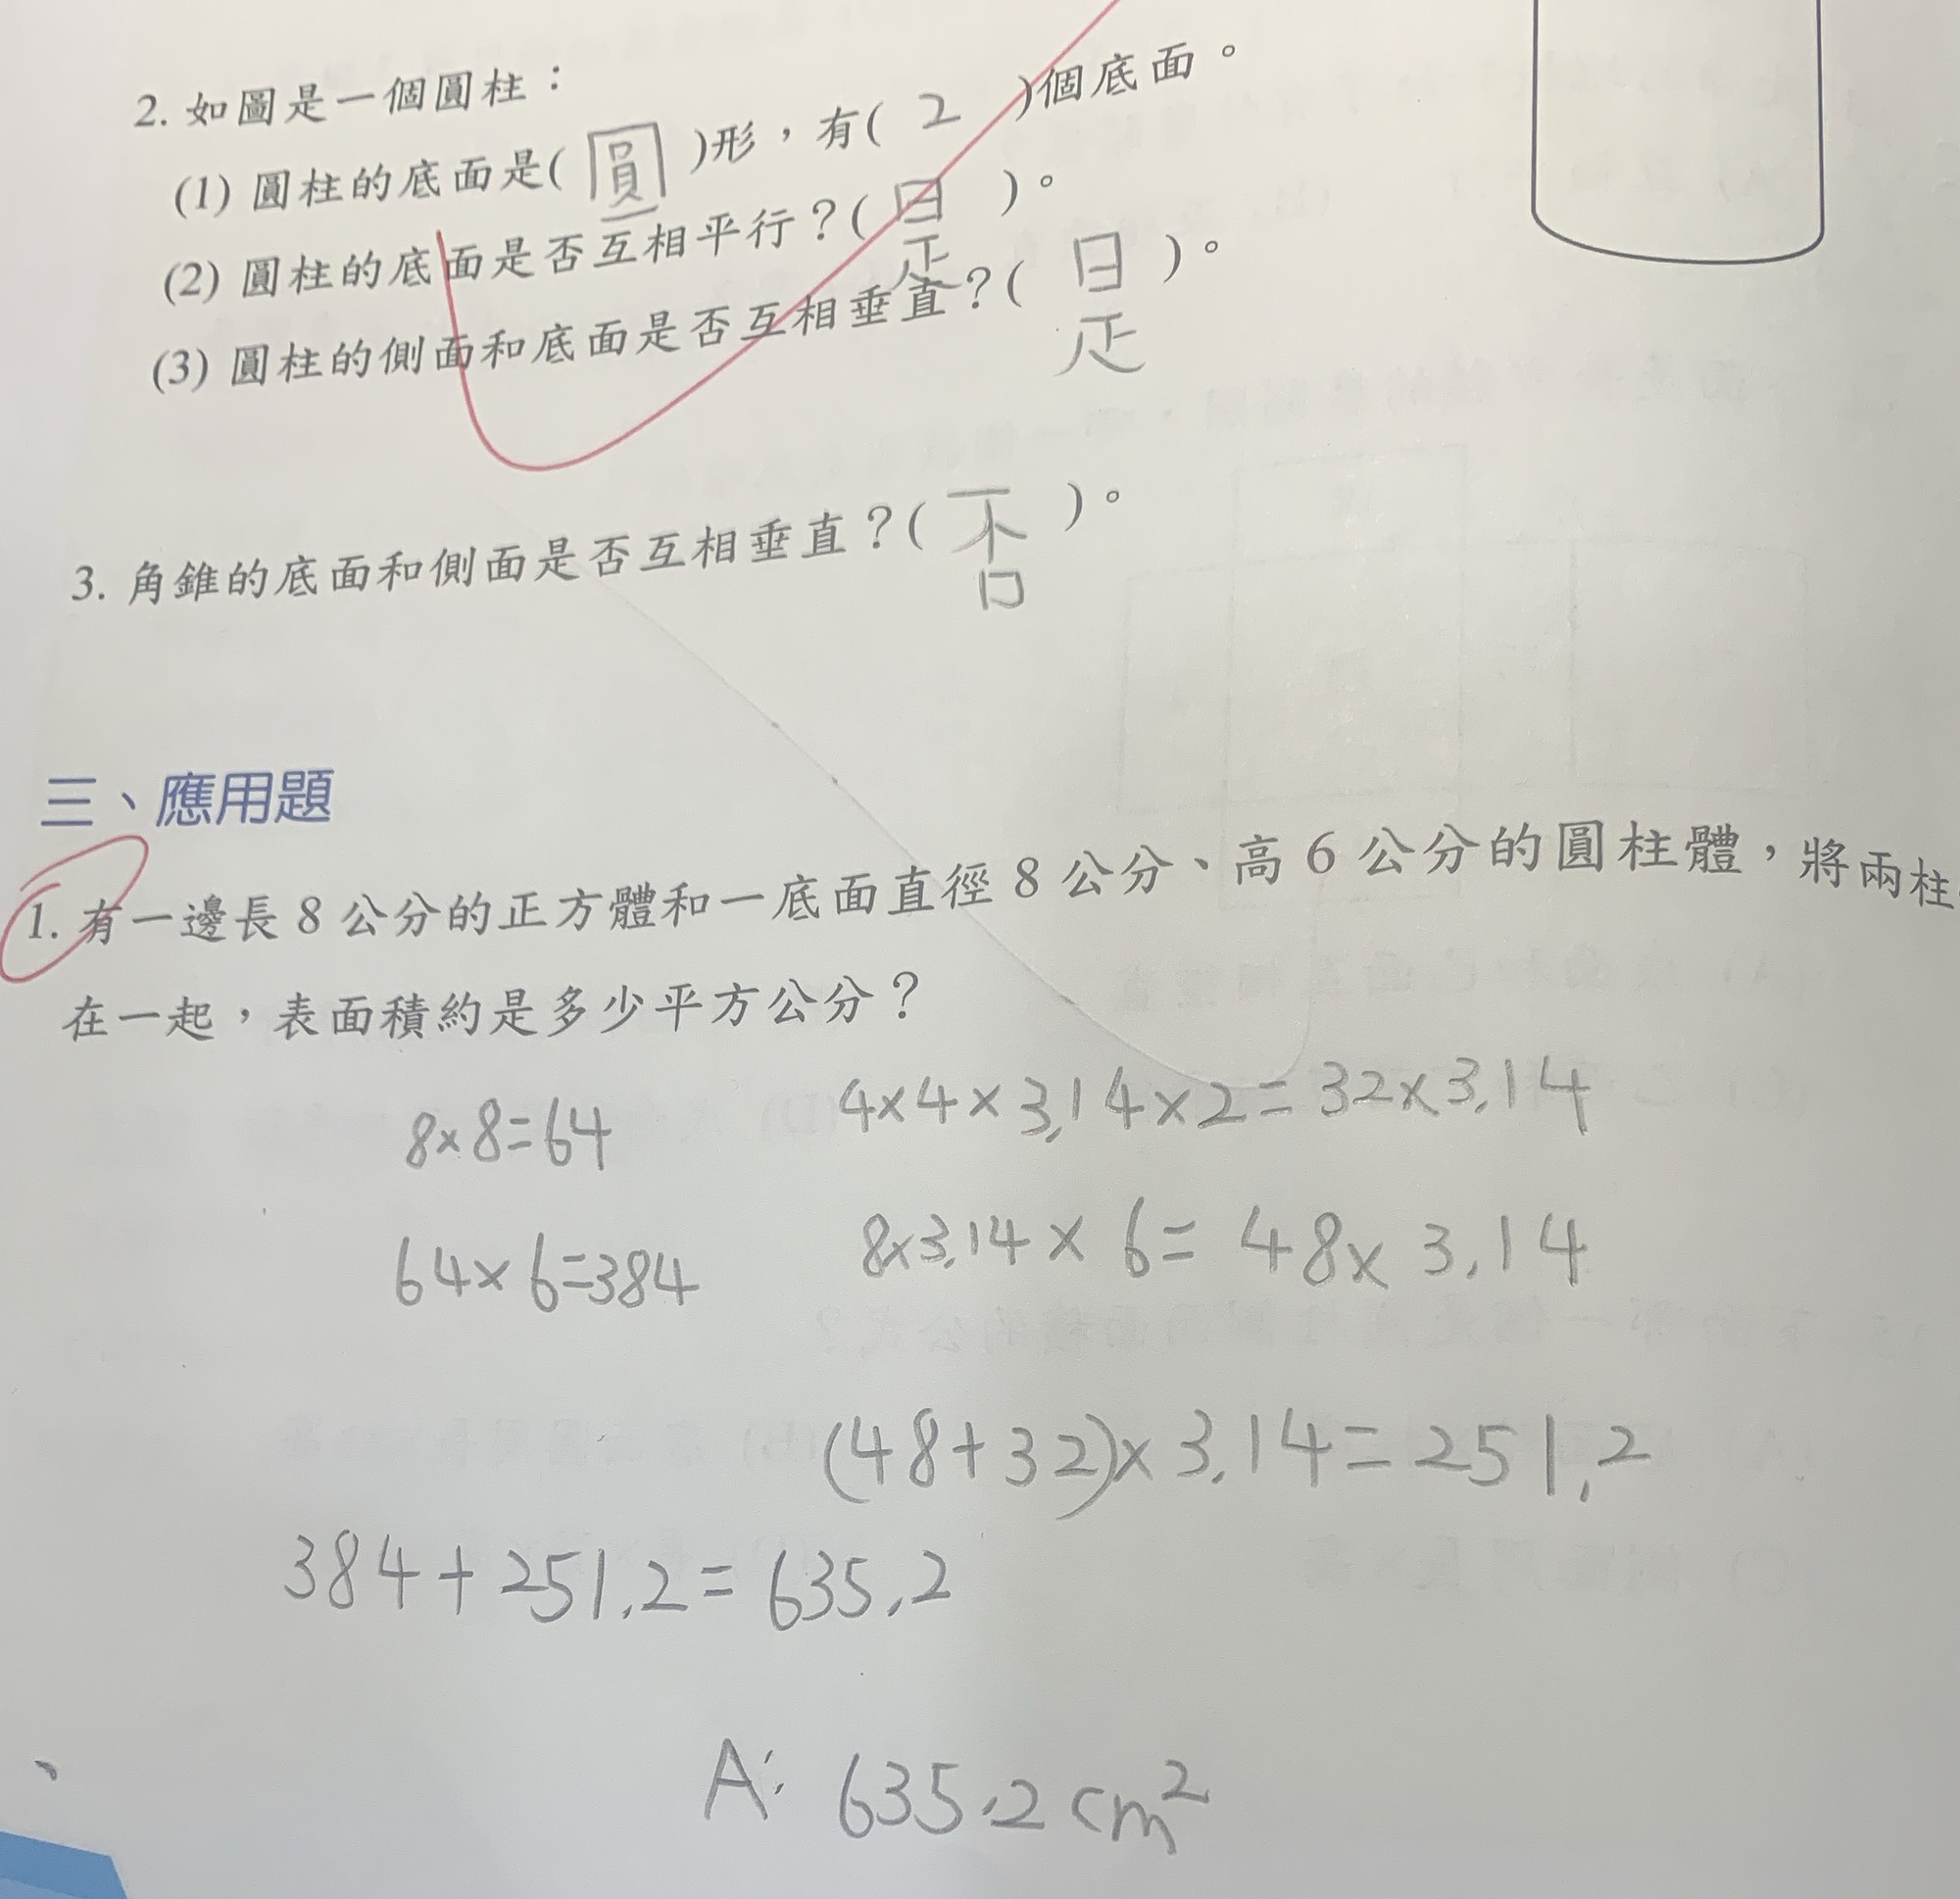 2. 如圖是一個圓柱：
(1) 圓柱的底面是( 圓 )形，有( 2 )個底面。
(2) 圓柱的底面是否互相平行？( 是 )。
(3) 圓柱的側面和底面是否互相垂直？( 是 )。
3. 角錐的底面和側面是否互相垂直？( 否 )。
三、應用題
1. 有一邊長 8 公分的正方體和一底面直徑 8 公分、高 6 公分的圓柱體，將兩柱
在一起，表面積約是多少平方公分？
8×8=64
4×4×3.14×2=32×3.14
64×6=384
8×3.14×6=48×3.14
(48+32)×3.14=251.2
384+251.2=635.2
A: 635.2 cm²